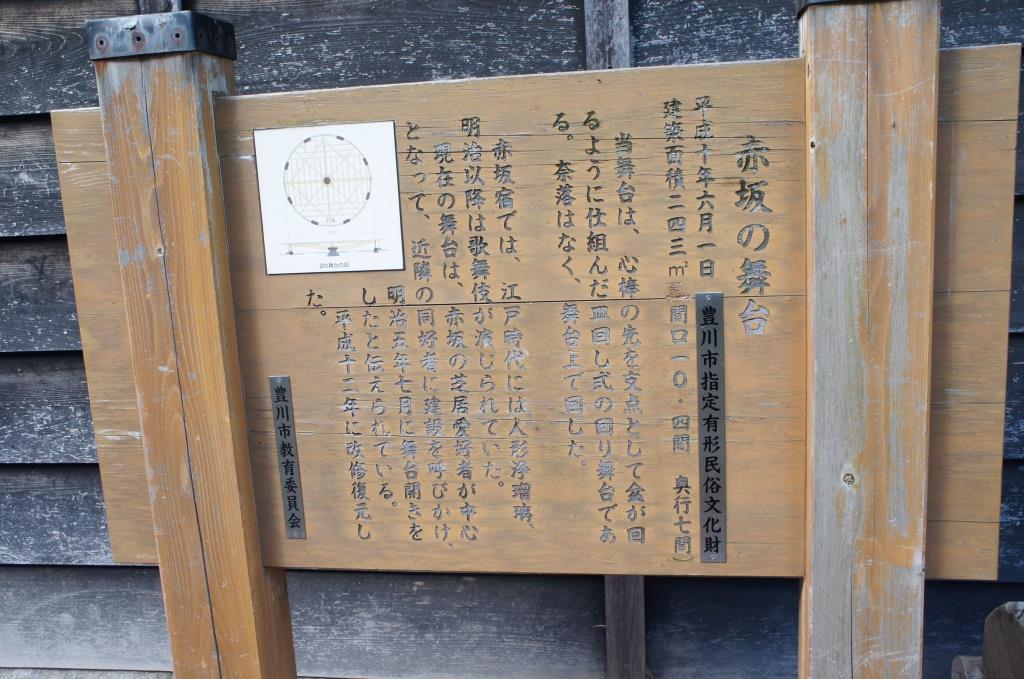 赤坂の舞台
豊川市指定有形民俗文化財
平成十年六月一日
建築面積二四三㎡(間口一〇・四間 奥行七間)
当舞台は、心棒の先を支点として盆が回
るように仕組んだ皿回し式の回り舞台であ
る。奈落はなく、舞台上で回した。
赤坂宿では、江戸時代には人形浄瑠璃、
明治以降は歌舞伎が演じられていた。
現在の舞台は、赤坂の芝居愛好者が中心
となって、近隣の同好者に建設を呼びかけ、
明治五年七月に舞台開きを
したと伝えられている。
平成十二年に改修復元し
た。
豊川市教育委員会
回り舞台の図